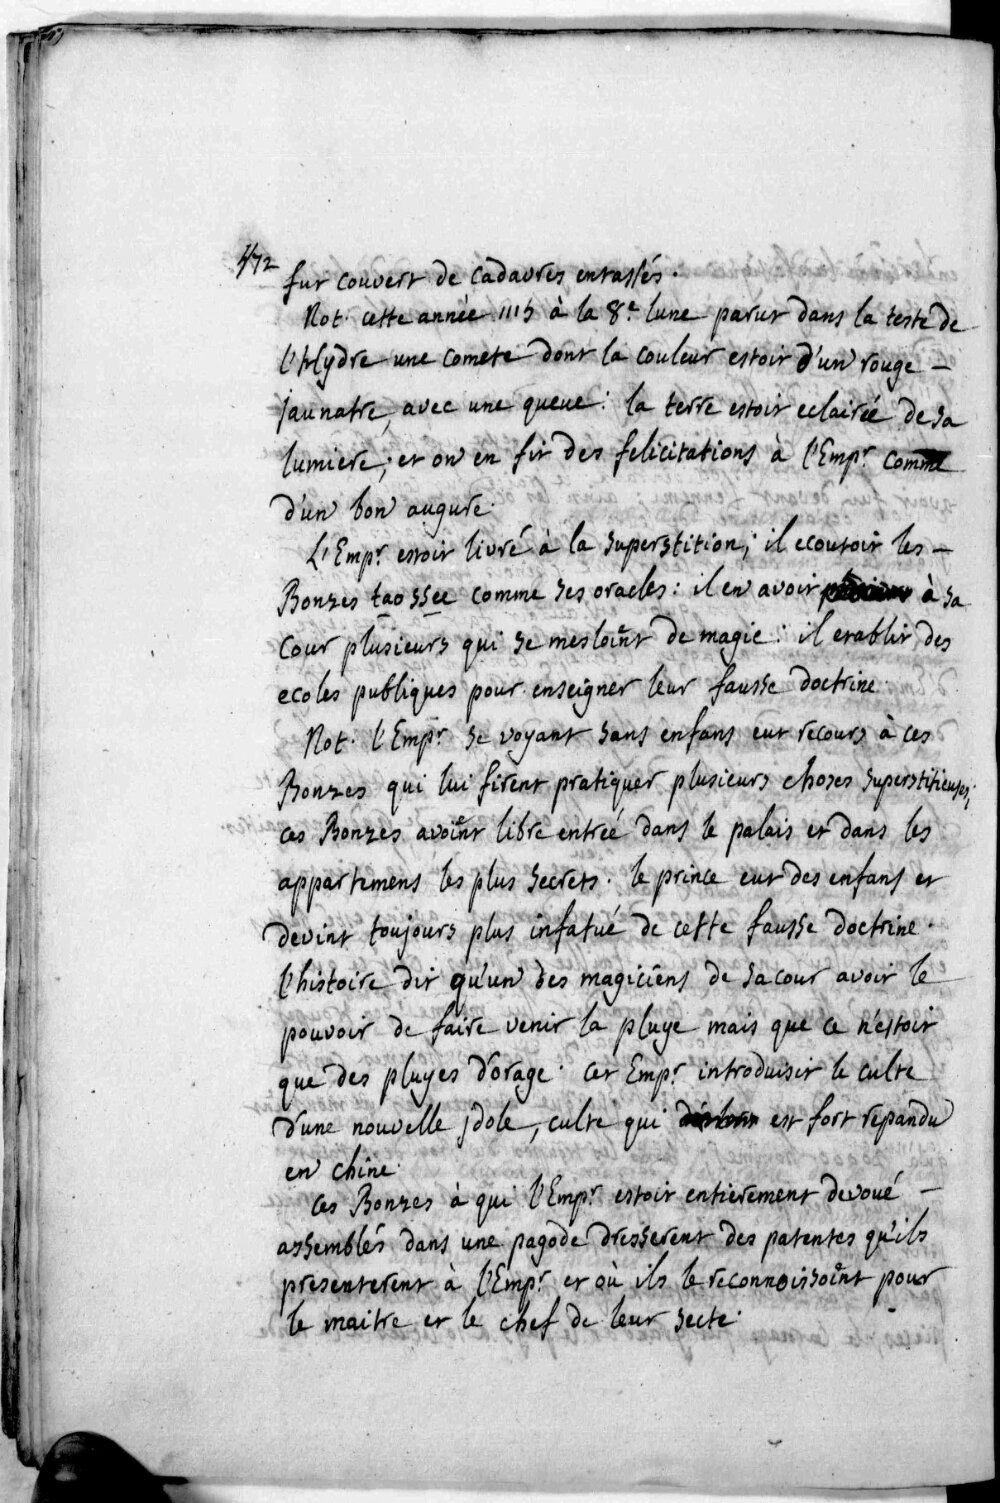 472
fut couvert de cadavres entassés.
Not. cette année 1115 à la 8e lune parut dans la teste de
l'Hydre une comete dont la couleur estoit d'un rouge –
jaunatre, avec une queue: la terre estoit eclairée de sa
lumiere, et on en fit des felicitations à l'Empr. comme
d'un bon augure.
L'Empr. estoit livré à la superstition; il ecoutoit les –
Bonzes tao ssee comme ses oracles: il en avoit à sa
cour plusieurs qui se mesloiẽnt de magie: il etablit des
ecoles publiques pour enseigner leur fausse doctrine.
Not. l'Empr. se voyant sans enfans eut recours à ces
Bonzes qui lui firent pratiquer plusieurs choses superstitieuses;
ces Bonzes avoiẽnt libre entrée dans le palais et dans les
appartemens les plus secrets. le prince eut des enfans et
devint toujours plus infatué de cette fausse doctrine.
l'histoire dit qu'un des magiciens de sa cour avoit le
pouvoir de faire venir la pluye mais que ce n'estoit
que des pluyes d'orage. cet Empr. introduisit le culte
d'une nouvelle jdole, culte qui est fort repandu
en chine.
Ces Bonzes à qui l'Empr. estoit entierement devoué –
assemblés dans une pagode dresserent des patentes qu'ils
presenterent à l'Empr. et où ils le reconnoissoiẽnt pour
le maitre et le chef de leur secte.